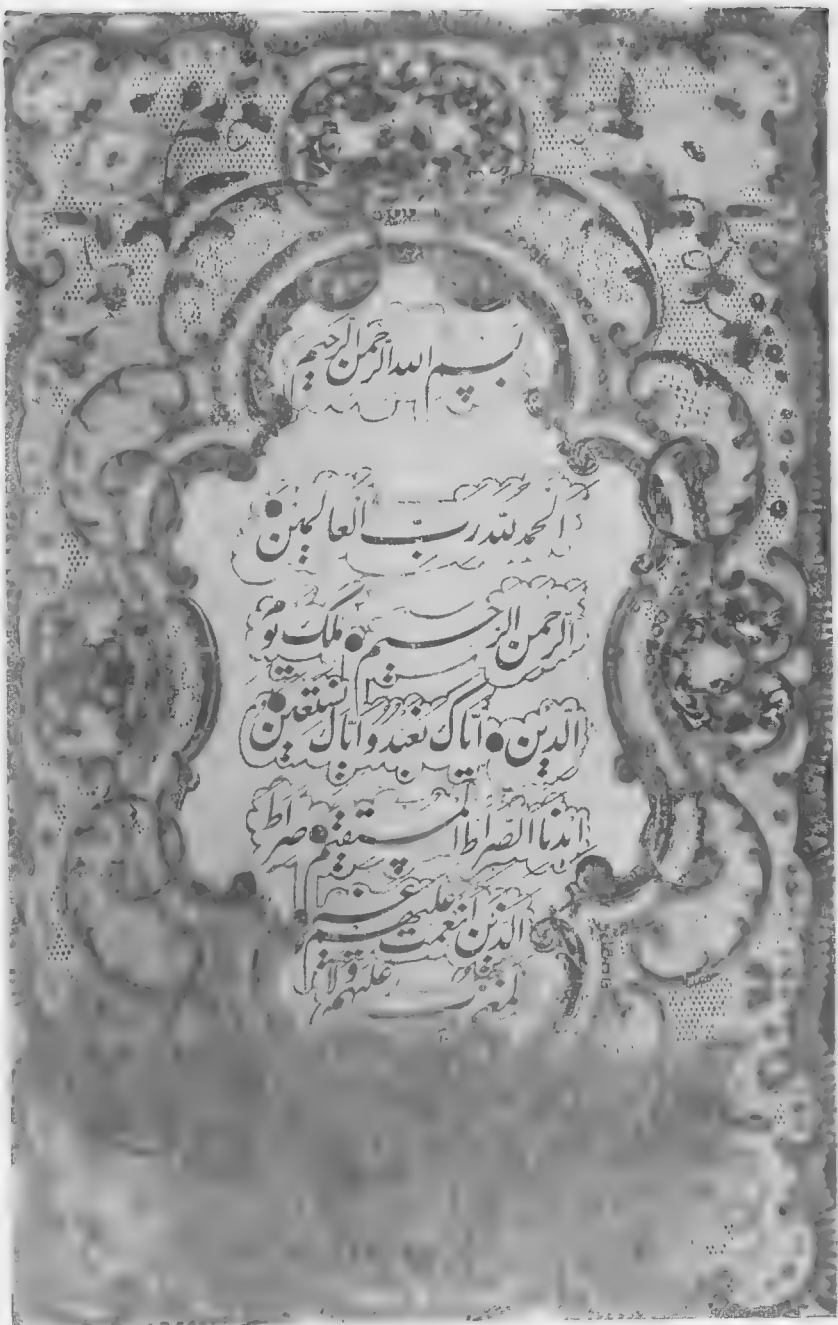 بسم الله الرحمن الرحيم
الحمد لله رب العالمين
الرحمن الرحيم ملك يوم
الدين اياك نعبد واياك نستعين
اهدنا الصراط المستقيم صراط
الذين انعمت عليهم غير
المغضوب عليهم ولا